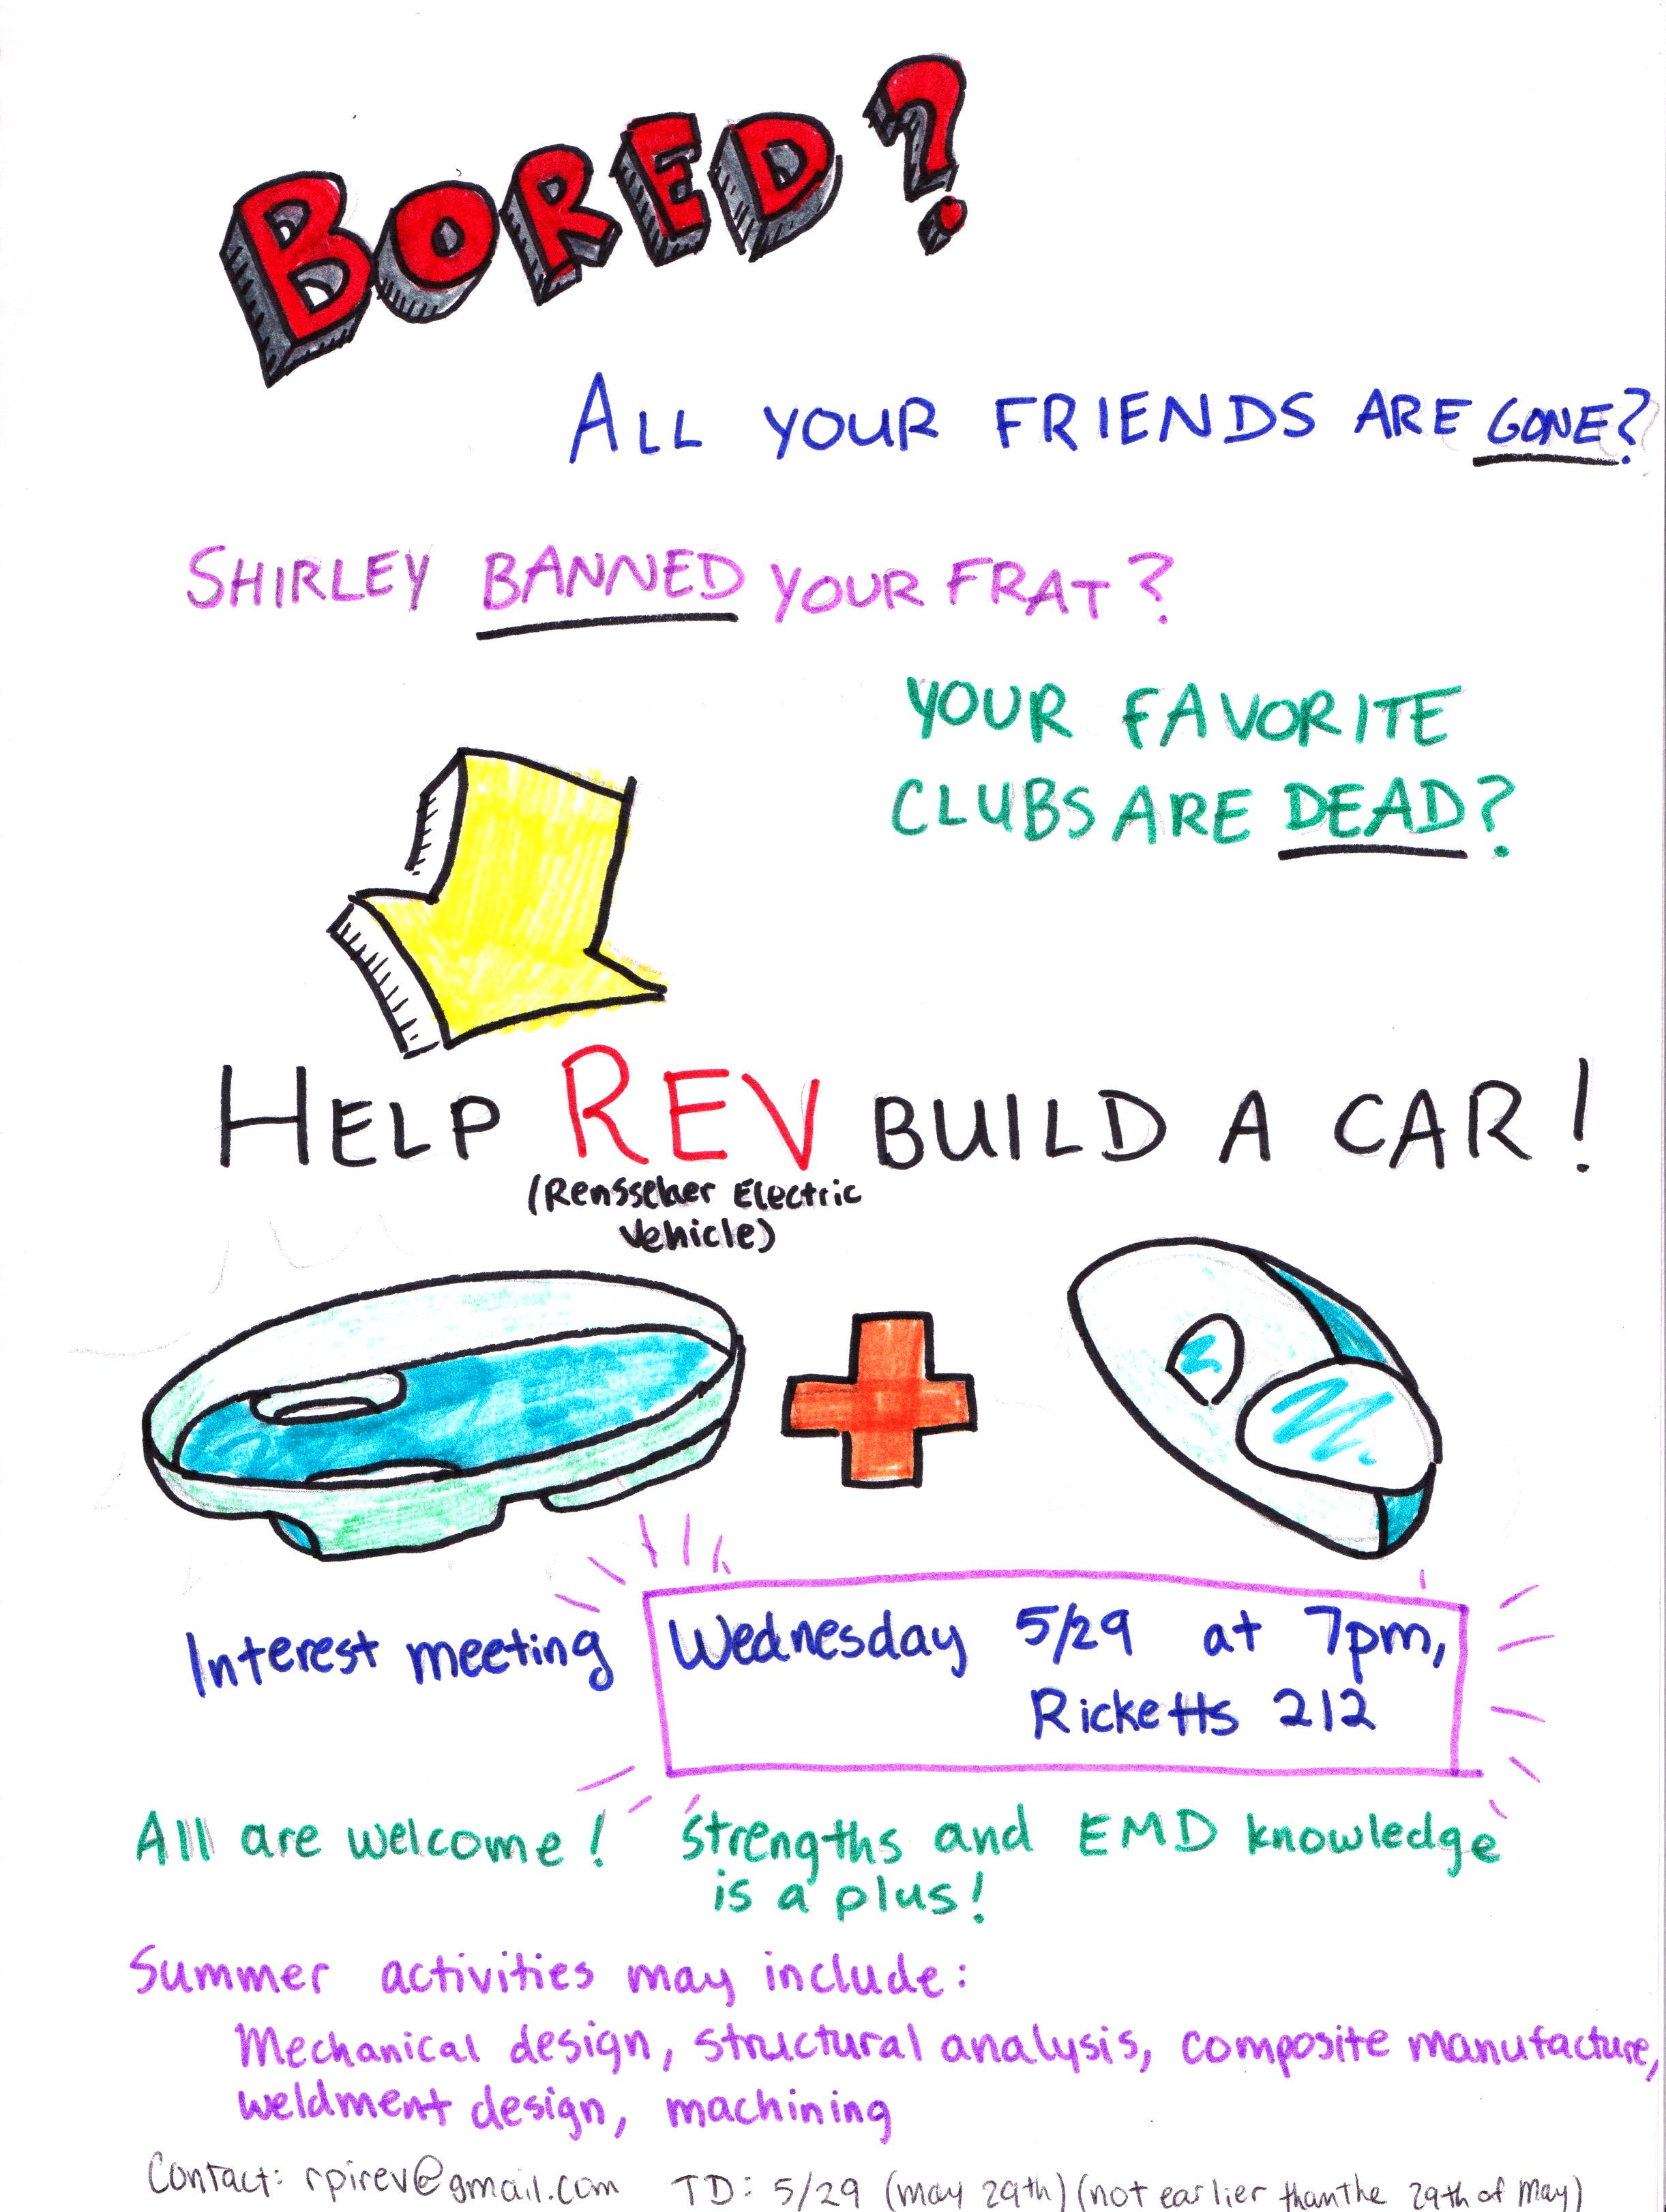 BORED?
ALL YOUR FRIENDS ARE GONE?
SHIRLEY BANNED YOUR FRAT?
YOUR FAVORITE
CLUBS ARE DEAD?
HELP REV BUILD A CAR!
(Rensselaer Electric
Vehicle)
Interest meeting Wednesday 5/29 at 7pm,
Ricketts 212
All are welcome! Strengths and EMD knowledge
is a plus!
Summer activities may include:
Mechanical design, structural analysis, composite manufacture,
weldment design, machining
Contact: rpirev@gmail.com TD: 5/29 (may 29th) (not earlier than the 29th of May)